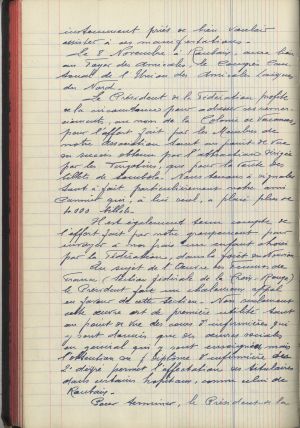 instamment priés de bien vouloir
assister à ces manifestations.
Le 8 Novembre à Roubaix, aura lieu
au Foyer des Amicales, le Congrès Can-
tonal de l'Union des Amicales Laïques
du Nord.
Le Président de la Fédération profite
de la circonstance pour adresser ses remer-
ciements, au nom de la Colonie de Vacances,
pour l'effort fait par les Membres de
notre Association tant au point de vue
du succès obtenu par l'attraction dirigée
par les Turgotins, que pour la vente des
billets de tombola. Nous tenons à signaler
tout à fait particulièrement notre ami
qui, à lui seul, a placé plus de
4.000 billets.
Il est également tenu compte de
l'effort fait par notre groupement pour
envoyer à nos frais un enfant choisi
par la Fédération, dans la forêt
Au sujet de l'Œuvre de Secours de
France, section fédérale de la Croix-Rouge,
le Président fait un chaleureux appel
en faveur de cette section. Non seulement
cette œuvre est de première utilité tant
au point de vue des cours d'infirmières qui
y sont donnés que des œuvres sociales
en général qui y sont enseignées, mais
l'obtention du diplôme d'infirmière du
2e degré permet l'affectation des titulaires
dans certains hôpitaux, comme celui de
Roubaix.
Pour terminer, le Président de la